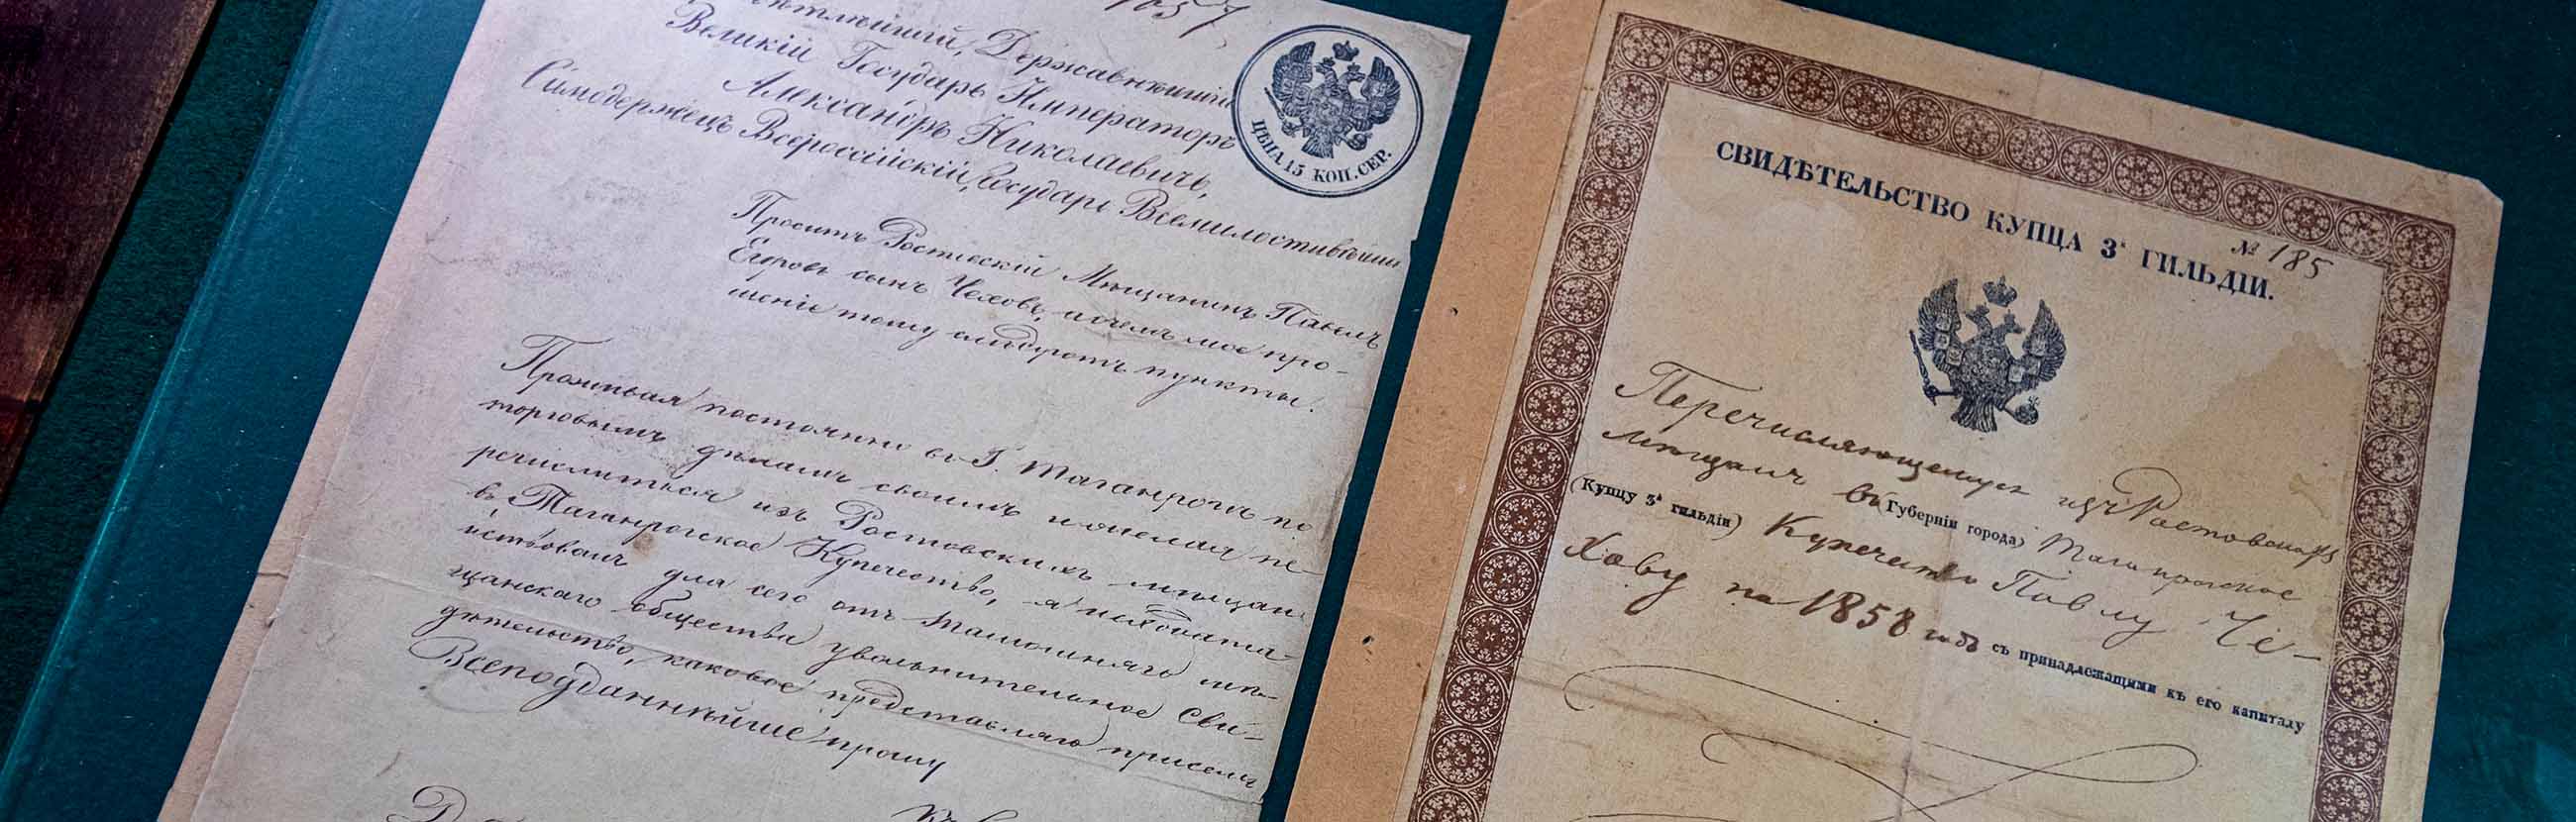 1857
Державнѣйшій
Великій Государь Императоръ
Александръ Николаевичъ,
Самодержецъ Всероссійскій, Государь Всемилостивѣйшій
ЦѢНА 15 КОП. СЕР.
Проситъ Ростовскій Мѣщанинъ Павелъ
Егоровъ сынъ Чеховъ, о чемъ мое про-
шеніе тому слѣдуютъ пункты.
Проживая постоянно въ Г. Таганрогѣ по
торговымъ дѣламъ своимъ и желая пе-
речислиться изъ Ростовскихъ мѣщанъ
въ Таганрогское Купечество, я исходатай-
ствовалъ для сего отъ тамошняго мѣ-
щанскаго общества увольнительное Сви-
дѣтельство, каковое представляя при семъ
Всеподданнѣйше прошу
СВИДѢТЕЛЬСТВО КУПЦА 3й ГИЛЬДІИ.
№ 185
Перечисляющемуся изъ Ростовскихъ
мѣщанъ въ (Губерніи города) Таганрогское
(Купцу 3й гильдіи) Купечество Павлу Че-
хову на 1858 годъ съ принадлежащими къ его капиталу